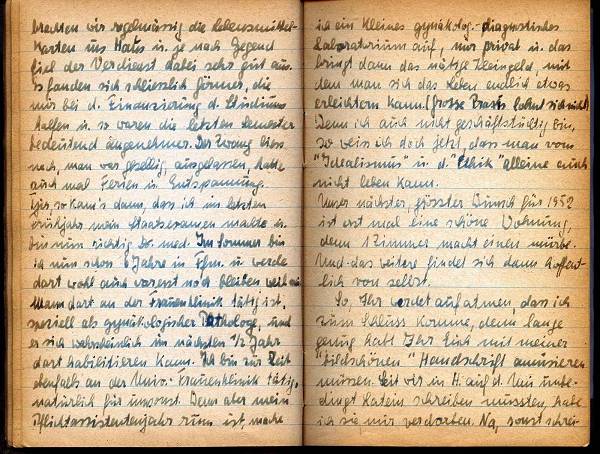 brachten wir regelmässig die Lebensmittel-
karten ins Haus u. je nach Gegend
fiel der Verdienst dabei sehr gut aus.
Es fanden sich schliesslich Gönner, die
mir bei d. Finanzierung d. Studiums
halfen u. so waren die letzten Semester
bedeutend angenehmer. Der Zwang liess
nach, man war gesellig, ausgelassen, hatte
auch mal Ferien u. Entspannung.
Tja, so kam's dann, dass ich im letzten
Frühjahr mein Staatsexamen machte u.
bin nun richtig Dr. med. Im Sommer bin
ich nun schon 6 Jahre in Ffm. u. werde
dort wohl auch vorerst noch bleiben, weil m.
Mann dort an der Frauenklinik tätig ist,
speziell als gynäkologischer Pathologe, und
er sich wahrscheinlich im nächsten 1/2 Jahr
dort habilitieren kann. Ich bin zur Zeit
ebenfalls an der Univ. Frauenklinik tätig,
natürlich für umsonst. Denn aber mein
Pflichtassistentenjahr rum ist, mache
ich ein kleines gynäkolog.-diagnostisches
Laboratorium auf, nur privat u. das
bringt dann das nötige Kleingeld, mit
dem man sich das Leben endlich etwas
erleichtern kann. (grosse Praxis lohnt sich nicht)
Denn ich auch nicht geschäftstüchtig bin,
so weis ich doch jetzt, dass man vom
"Idealismus" u. d. "Ethik" alleine auch
nicht leben kann.
Unser nächster, grösster Wunsch für 1952
ist erst mal eine schöne Wohnung,
denn 1 Zimmer macht einen mürbe.
Und das weitere findet sich dann hoffent-
lich von selbst.
So, Ihr werdet aufatmen, dass ich
zum Schluss komme, denn lange
genug habt Ihr Euch mit meiner
"bildschönen" Handschrift amüsieren
müssen. Seit wir in H. auf d. Uni unbe-
dingt Latein schreiben mussten, habe
ich sie mir verdorben. Na, sonst schrei-